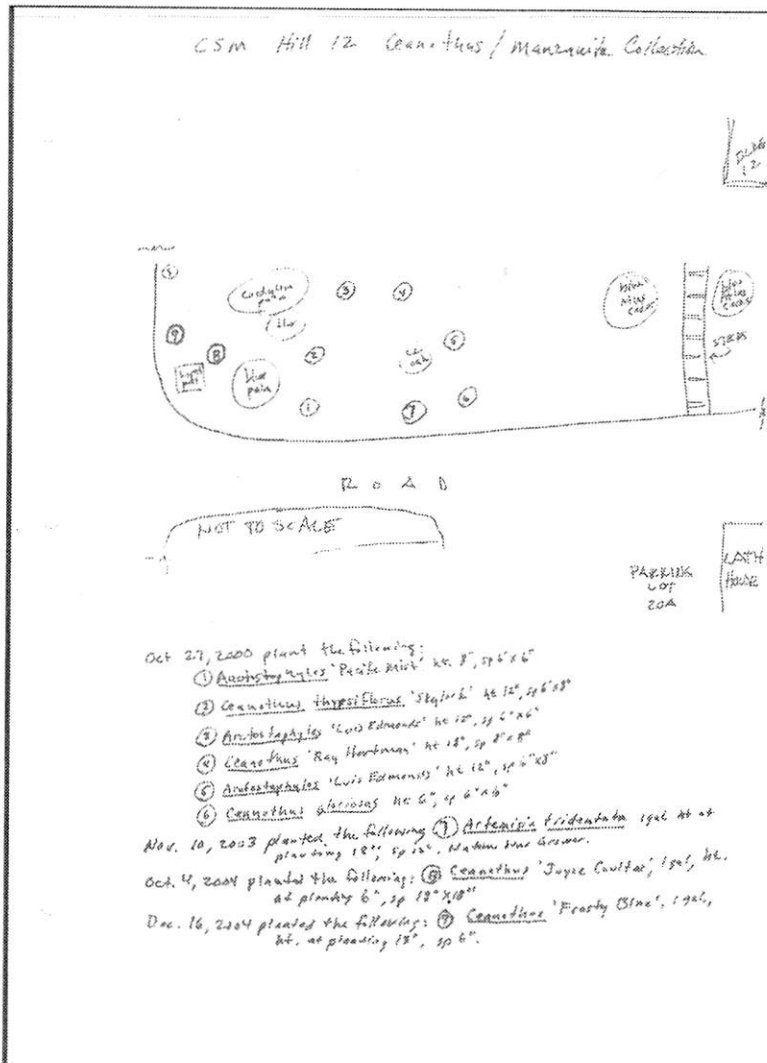 CSM Hill 12 Ceanothus / Manzanita Collection
12
Cordyline
palm
3
4
Blue
Atlas
cedar
Blue
Atlas
cedar
9
8
2
oak
5
STEPS
Blue
palm
1
7
6
ROAD
NOT TO SCALE
PARKING
LOT
20A
LATH
HOUSE
Oct 27, 2000 plant the following:
① Arctostaphylos 'Pacific Mist' ht 8", sp 6" x 6"
② Ceanothus thyrsiflorus 'Skylark' ht 12", sp 6" x 8"
③ Arctostaphylos 'Luis Edmonds' ht 12", sp 6" x 6"
④ Ceanothus 'Ray Hartman' ht 18", sp 8" x 8"
⑤ Arctostaphylos 'Luis Edmonds' ht 12", sp 6" x 8"
⑥ Ceanothus gloriosus ht 6", sp 6" x 6"
Nov. 10, 2003 planted the following ⑦ Artemisia tridentata 1 gal ht at
planting 18", sp Native Grower.
Oct. 4, 2004 planted the following: ⑧ Ceanothus 'Joyce Coulter', 1 gal, ht.
at planting 6", sp 18" x 18"
Dec. 16, 2004 planted the following: ⑨ Ceanothus 'Frosty Blue', 1 gal,
ht. at planting 18", sp 6".